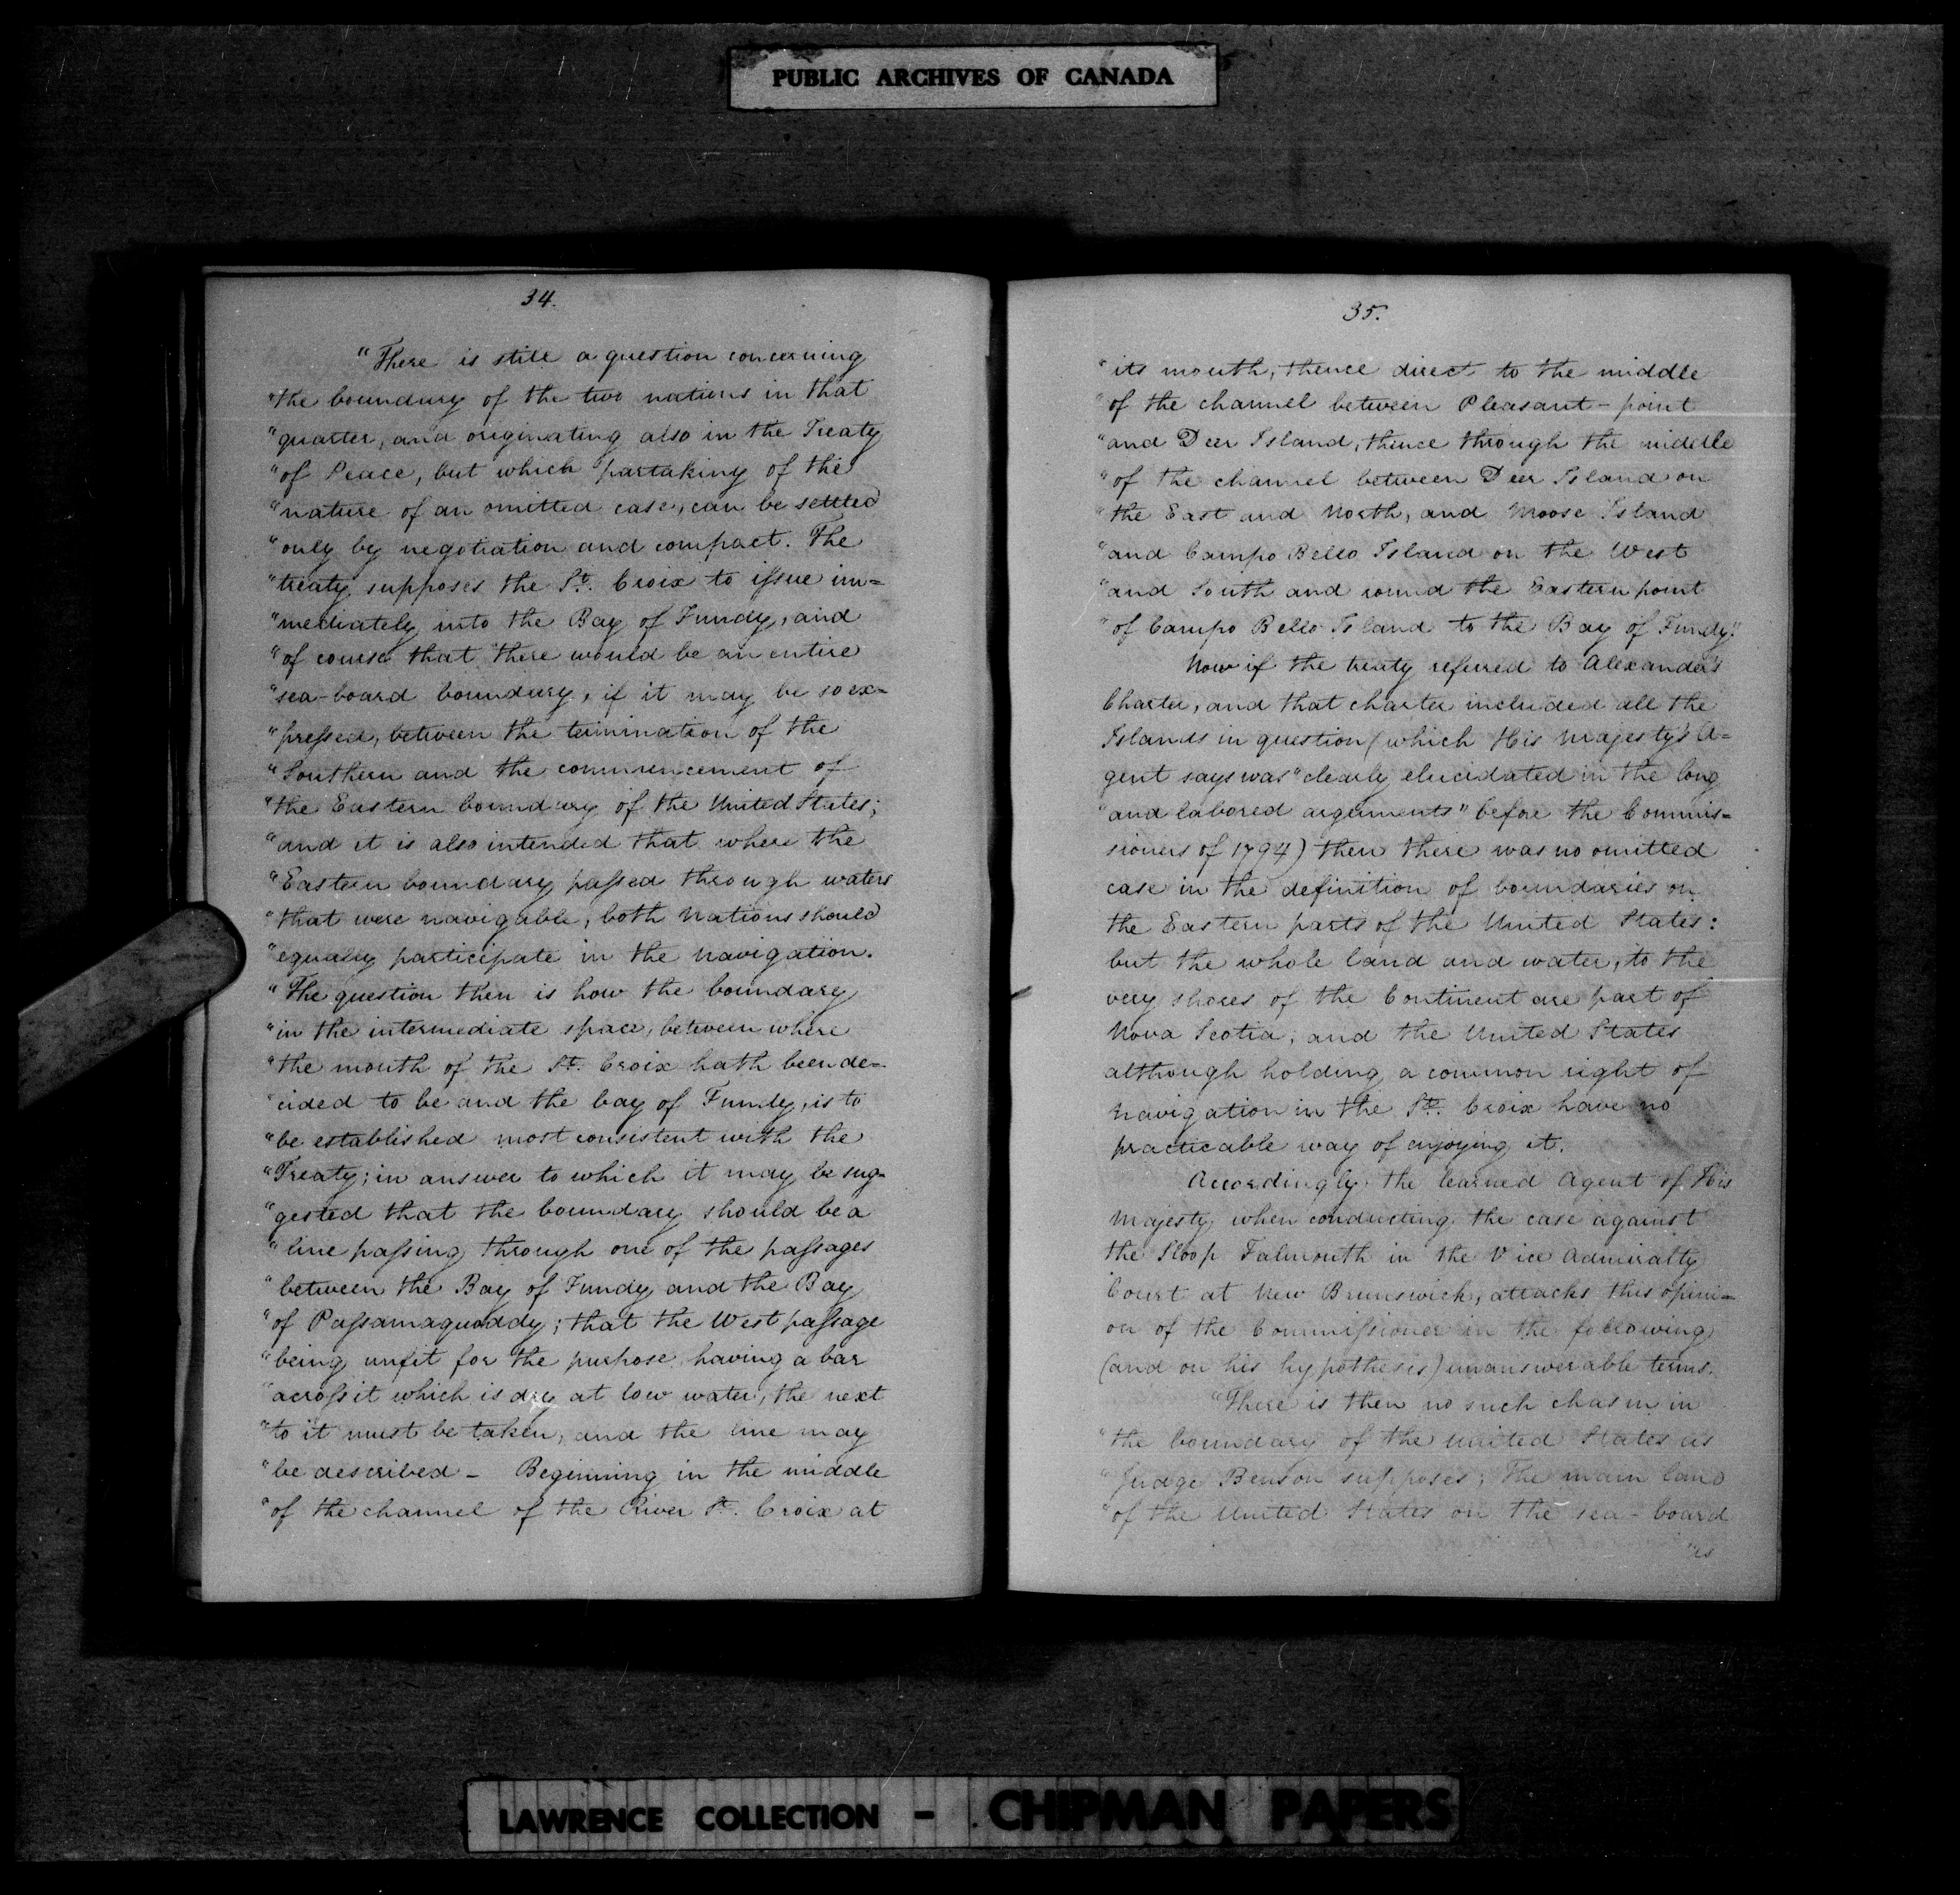 PUBLIC ARCHIVES OF CANADA
34.
"There is still a question concerning
"the boundary of the two nations in that
"quarter, and originating also in the Treaty
"of Peace, but which partaking of the
"nature of an omitted case, can be settled
"only by negotiation and compact. The
"treaty supposes the St. Croix to issue im=
"mediately into the Bay of Fundy, and
"of course that there would be an entire
"sea-board boundary, if it may be so ex=
"pressed, between the termination of the
"Southern and the commencement of
"the Eastern boundary of the United States;
"and it is also intended that where the
"Eastern boundary passed through waters
"that were navigable, both Nations should
"equally participate in the navigation.
"The question then is how the boundary
"in the intermediate space, between where
"the mouth of the St. Croix hath been de=
"cided to be and the bay of Fundy, is to
"be established most consistent with the
"Treaty; in answer to which it may be sug=
"gested that the boundary should be a
"line passing through one of the passages
"between the Bay of Fundy and the Bay
"of Passamaquoddy; that the West passage
"being unfit for the purpose having a bar
"across it which is dry at low water, the next
"to it must be taken, and the line may
"be described - Beginning in the middle
"of the channel of the River St. Croix at
35.
"its mouth, thence direct to the middle
"of the channel between Pleasant-point
"and Deer Island, thence through the middle
"of the channel between Deer Island on
"the East and North, and Moose Island
"and Campo Bello Island on the West
"and South and round the Eastern point
"of Campo Bello Island to the Bay of Fundy."
Now if the treaty referred to Alexander's
Charter, and that charter included all the
Islands in question (which His Majesty's A=
gent says was "clearly elucidated in the long
"and labored arguments" before the Commis=
sioners of 1794) then there was no omitted
case in the definition of boundaries on
the Eastern parts of the United States:
but the whole land and water, to the
very shores of the Continent are part of
Nova Scotia, and the United States
although holding a common right of
navigation in the St. Croix have no
practicable way of enjoying it.
Accordingly the learned Agent of His
Majesty when conducting the case against
the Sloop Falmouth in the Vice Admiralty
Court at New Brunswick, attacks this opini=
on of the Commissioner in the following
(and on his hypothesis) unanswerable terms.
"There is then no such chasm in
"the boundary of the United States as
"Judge Benson supposes; The main land
"of the United States on the sea-board
"is
LAWRENCE COLLECTION - CHIPMAN PAPERS